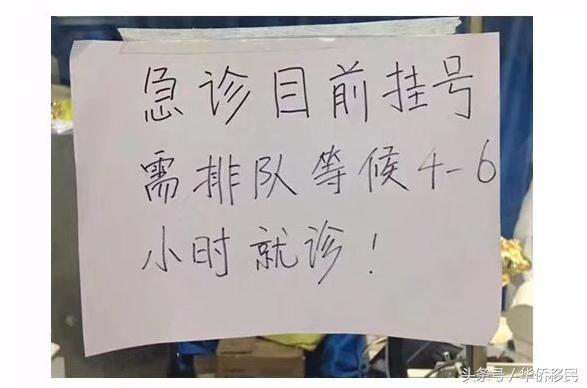 急诊目前挂号
需排队等候4-6
小时就诊!
头条号/华侨移民